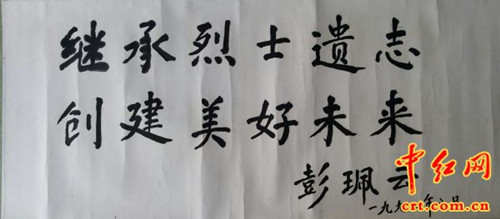 继承烈士遗志
创建美好未来
彭珮云
中红网
crt.com.cn